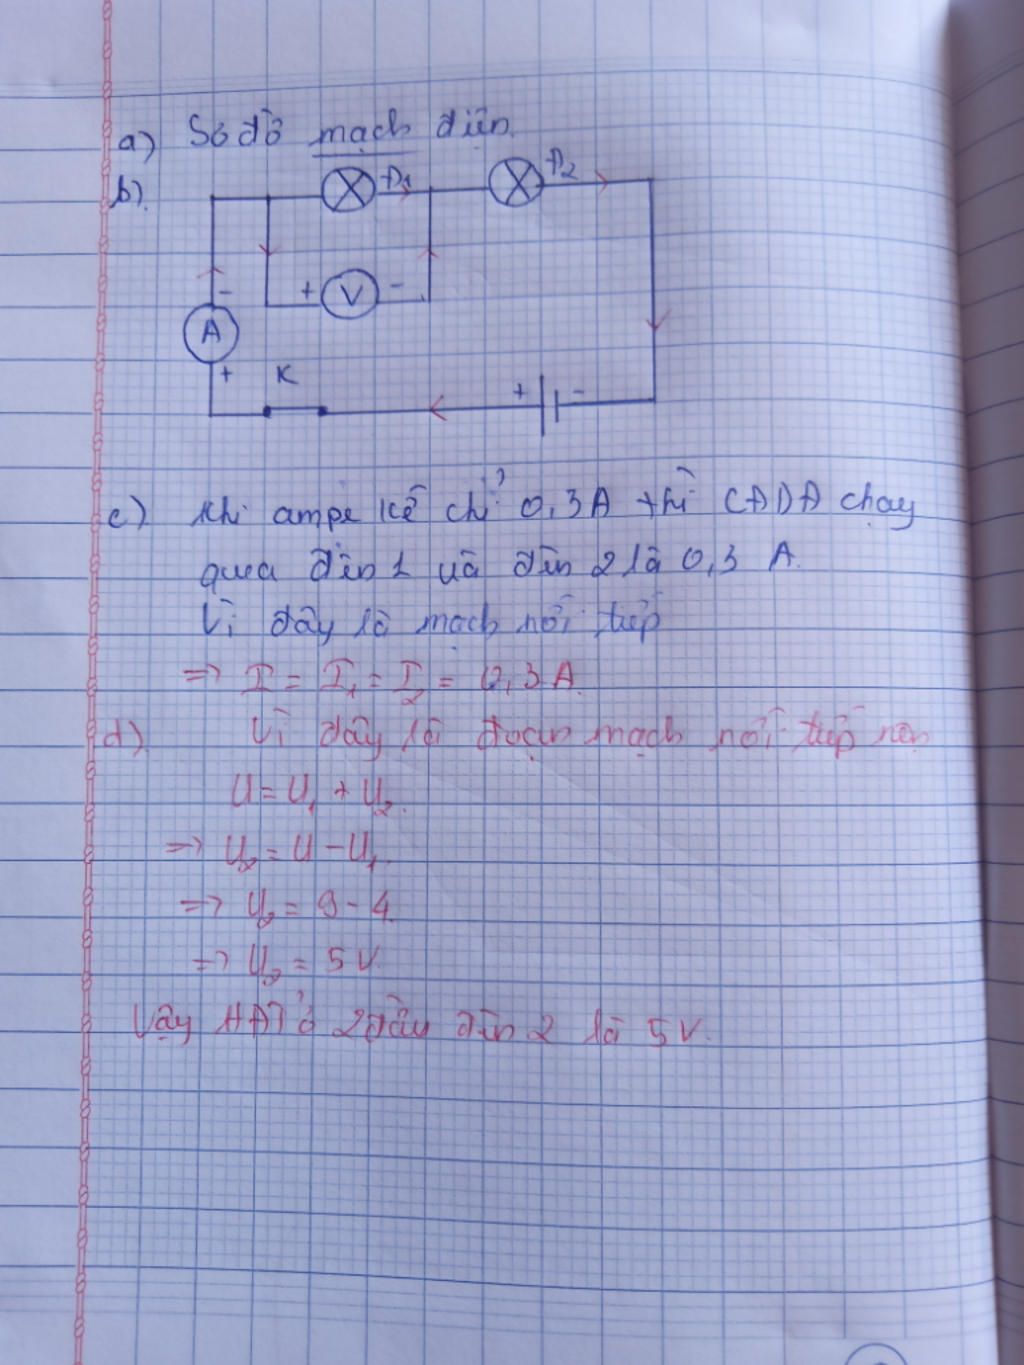 a) Sơ đồ mạch điện.
b).
Đ1
Đ2
+ V -
-
A
+
K
+ -
c) Khi ampe kế chỉ 0,3A thì CĐDĐ chạy
qua đèn 1 và đèn 2 là 0,3 A.
Vì đây là mạch nối tiếp
=> I = I₁ = I₂ = 0,3A.
d). Vì đây là đoạn mạch nối tiếp nên
U = U₁ + U₂.
=> U₂ = U - U₁.
=> U₂ = 9 - 4
=> U₂ = 5 V.
Vậy HĐT ở 2 đầu đèn 2 là 5 V.